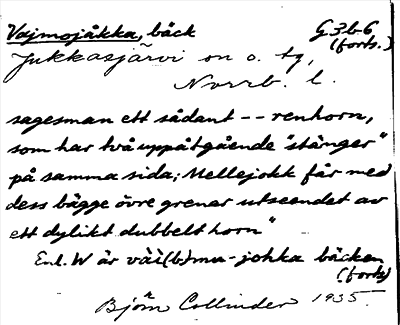 Vajmojåkka, bäck G 3b6
(forts.)
Jukkasjärvi sn o. tg,
Norrb. l.
sagesman ett sådant -- renhorn,
som har två uppåtgående "stänger"
på samma sida; Mellejokk får med
dess bägge övre grenar utseendet av
ett dylikt dubbelt horn"
Enl. W är vài(b)mu-johka bäcken
(forts)
Björn Collinder 1935.